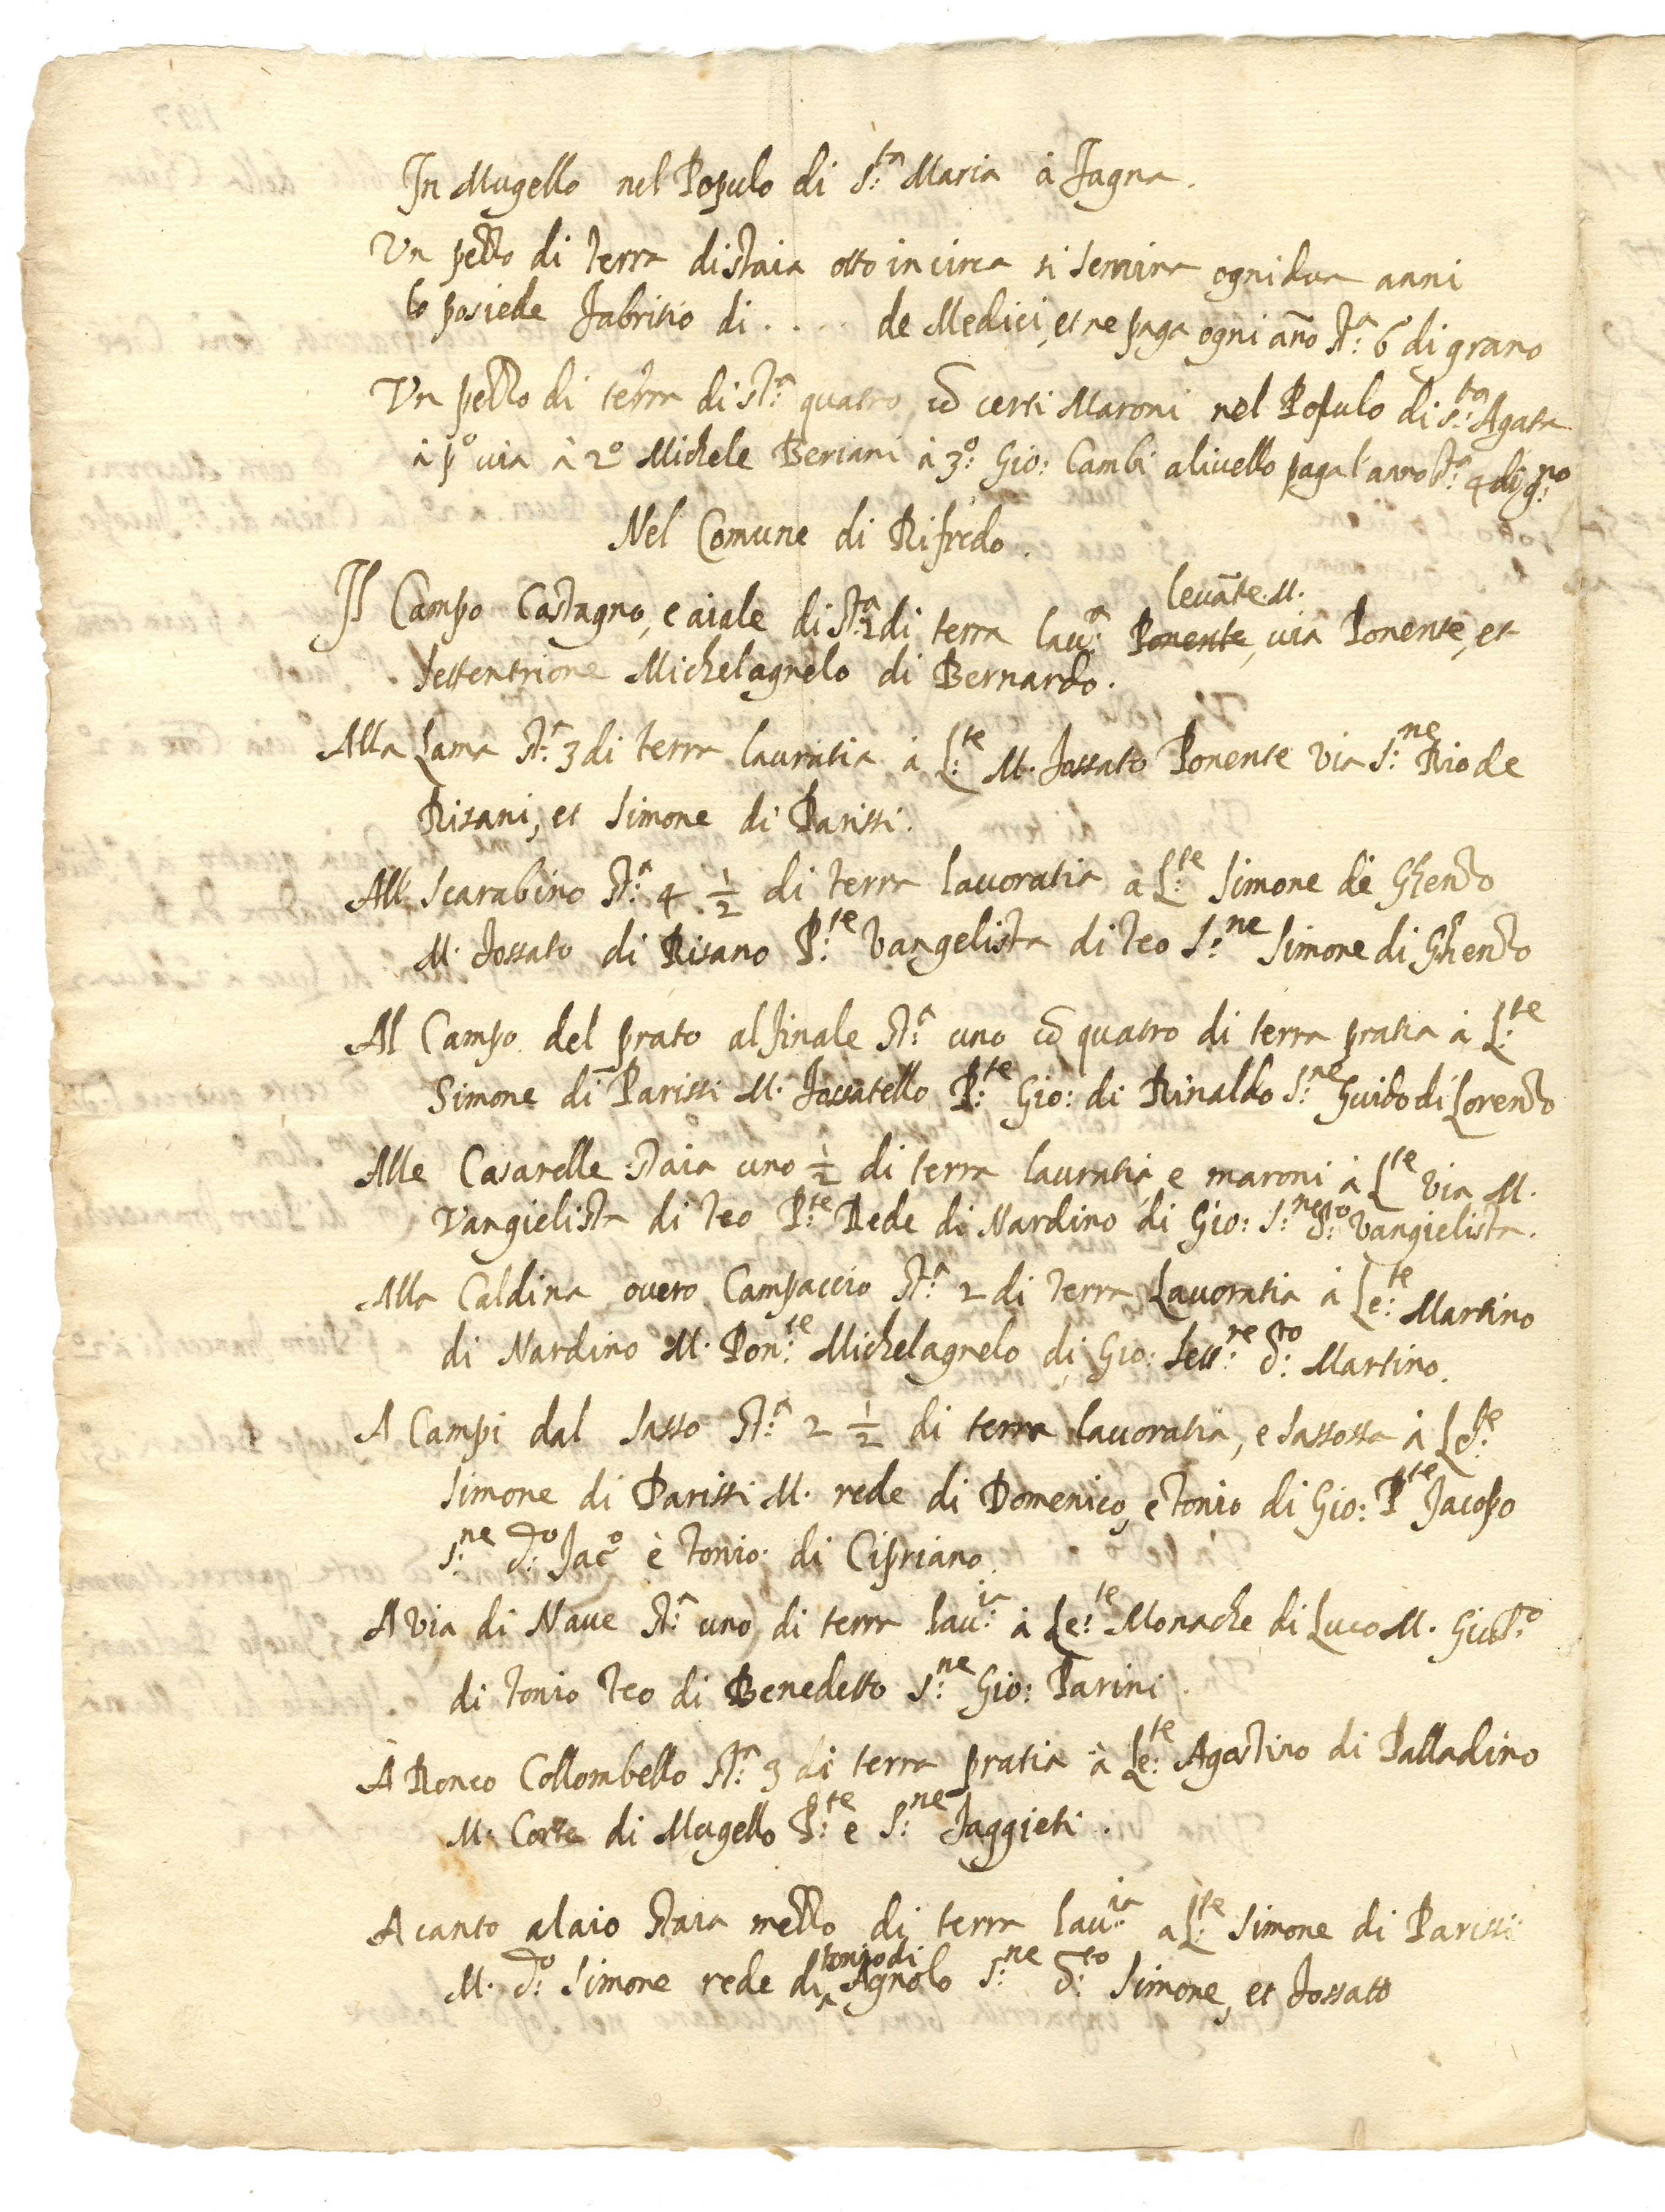 In Mugello nel Popolo di S.ta Maria à Fagna.
Un pezzo di terra di staia otto in circa si semina ogni dua anni
lo posiede Fabritio di . . . . de Medici, et ne paga ogni año st.a 6 di grano
Un pezzo di terra di st.a quatro, cõ certi Maroni nel Popolo di S.ta Agata
à p.o via à 2.o Michele Beriani à 3.o Gio: Cambi a livello paga l'anno st.a 4 di g.no
Nel Comune di Rifredo.
levãte. M.
Il Campo Castagno, e aiale di st.a 2 di terra lau.a Ponente, via Ponente, et
settentrione Michelagnelo di Bernardo.
Alla Lama st.a 3 di terra lauratia à L.te M. fossato Ponente Via S.ne Rio de
Risani, et Simone di Parissi.
All Scarabino st.a 4 1/2 di terra lauoratia à L.te Simone de Ghenzo
M. fossato di Risano P.te Vangelista di Teo S.ne Simone di Ghenzo
Al Campo del prato al finale st.a uno cõ quatro di terra pratia à L.te
Simone di Parissi M. fossatello P.te Gio: di Rinaldo S.ne Guido di Lorenzo
Alle Casarelle staia uno 1/2 di terra lauratia, e maroni à L.te Via M.
Vangielista di Teo P.te Rede di Nardino di Gio: S.ne d.o Vangielista.
Alla Caldina overo Campaccio st.a 2 di terra Lauoratia à Le.te Martino
di Nardino M. Pon.te Michelagnelo di Gio: Sett.ne d.to Martino.
A Campi dal Sasso st.a 2 1/2 di terra lauoratia, e sassosa à Le.te
Simone di Parissi M. rede di Domenico, e Tonio di Gio: P.te Jacopo
S.ne d.o Jac.o è Tonio di Cipriano.
A via di Naue st.a uno, di terra lau.ia à Le.te Monache di Luco M.
di Tonio Teo di Benedetto S.ne Gio: Parini.
A Ronco Collombello st.a 3 di terra pratia à Le.te Agostino di Palladino
M. Corte di Mugello P.te e S.ne Faggieti.
A canto alaio staia mezzo di terra lau.ia a L.te Simone di Parissi
tonio di
M. d.o Simone rede di ^ Agnolo S.ne d.to Simone, et fossato